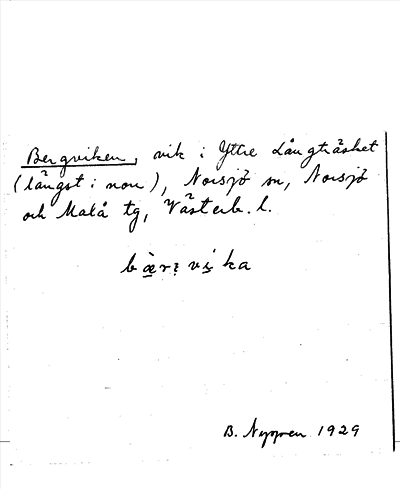 Bergviken, vik i Yttre Långträsket
(längst i norr), Norsjö sn, Norsjö
och Malå tg, Västerb. l.
bæ̀rɩvi̱ka
B. Nygren 1929